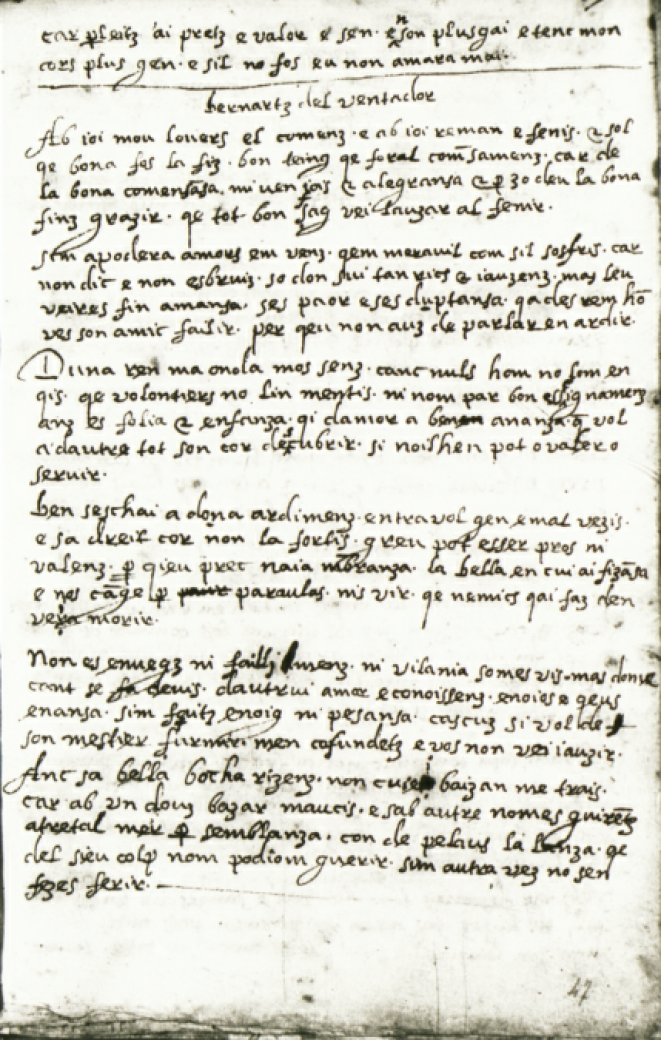 car ꝑleitz ai pretz e valor e sen. e n son plus gai e tenc mon
cors plus gen. e sil no fos eu non amara mai.
bernartz del ventador
Ab ioi mou lovers el comenz. e ab ioi reman e fenis. & sol
qe bona fos la fiz. bon teing qe foral com̄samenz. car de
la bona comensāsa. mi ven iais & alegransa & ꝑ zo deu la bona
finz grazir. qe tot bon faç vei lauzar al fenir.
Sim apodera amors em venz. qem meravil com sil sosfris. car
non dic e non esbruis. so don sui tan rics & iauzenz. mas leu
veires fin amansa. ses paor e ses duptansa. qades rem hō
ves son amic faillir. per qeu non auz de parlar en ardir.
Duna ren ma onda mos senz. canc nuls hom no iom en
qis. qe volontiers no lin mentis. ni nom par bon essignamenz
anz es folia & enfanza. qi damor a benen ananza. q̄ vol
a dautre tot son cor descubrir. si noilhen pot o valer o
servir.
Ben seschai a dona ardimenz. entra vol gen e mal vezis.
e sa dreit cor non la fortis. greu pot esser pros ni
valenz. ꝑ qieu prec naia mēbranza. la bella en cui ai fizāsa
e nos cāge ꝑ paraulas. nis vir. qe nemics qai faz den
veia morir.
Non es enuegz ni failli menz. ni vilania so mes vis. mas dome
cant se fa devis. dautrui amor e conoissenz. enoios e qeus
enansa. sim faitz enoig ni pesansa. cascuz si vol de
son mestier furmir. men cofundetz e vos non vei iauzir.
Anc sa bella bocha rizenz. non cuiei baizan me trais.
car ab un douz bazar maucis. e sab autre nomes guirētz
atretal mer ꝑ semblanza. con de pelaus la lanza. qe
del sieu colp nom podiom guerir. sim autra vez no sen
fezes ferir.
47